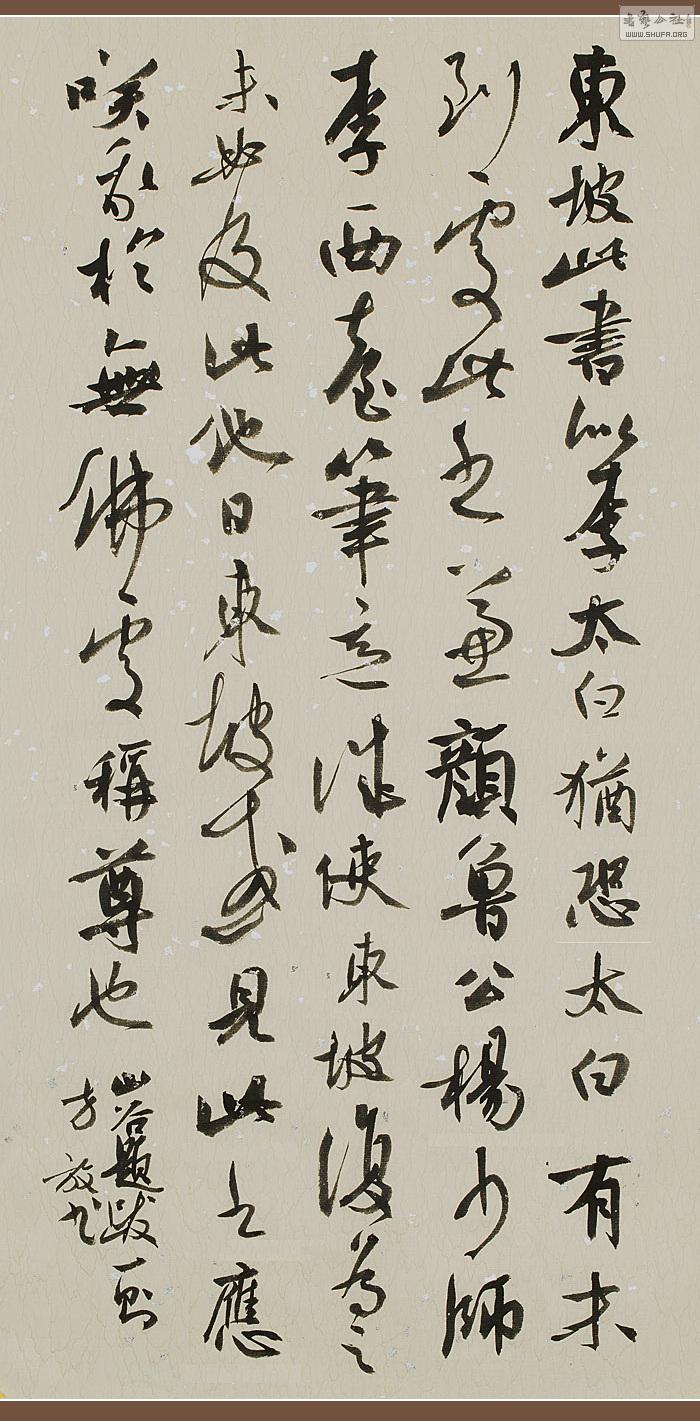 東坡此書似李太白猶恐太白有未
到處此書兼顏魯公楊少師
李西臺筆意試使東坡復為之
未必及此他日東坡或見此書應
咲我於無佛處稱尊也
山谷題跋一則
方放书
WWW.SHUFA.ORG